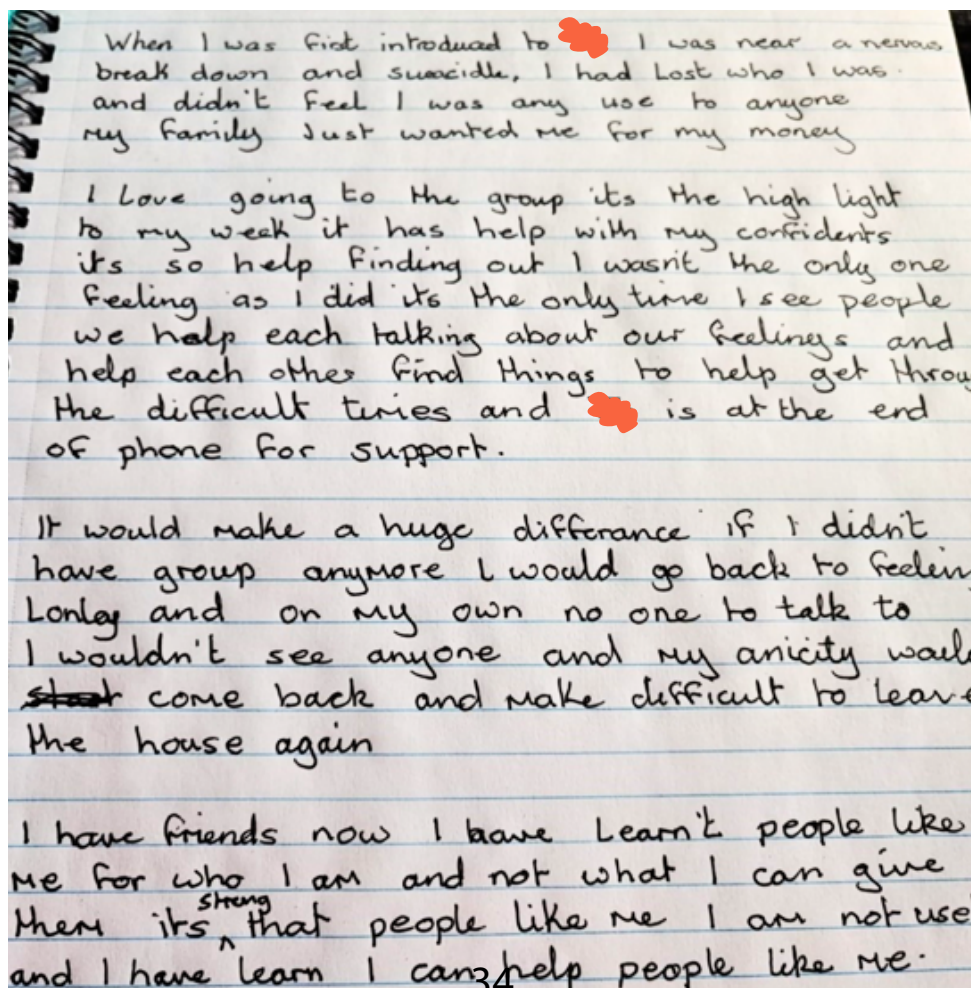 When I was fist introducad to I was near a nervous
break down and sueacidle, I had Lost who I was.
and didn't feel I was any use to anyone
my family Just wanted me for my money
I Love going to the group its the high light
to my week it has help with my confidents
its so help finding out I wasn't the only one
feeling as I did its the only time I see people
we help each talking about our feelings and
help each other find things to help get throu
the difficult times and is at the end
of phone for support.
It would make a huge differance if I didn't
have group anymore I would go back to feelin
Lonley and on my own no one to talk to
I wouldn't see anyone and my anicity woul
come back and make difficult to leave
the house again
I have friends now I have Learn't people like
me for who I am and not what I can give
them its strang that people like me I am not use
and I have learn I can help people like me.
34